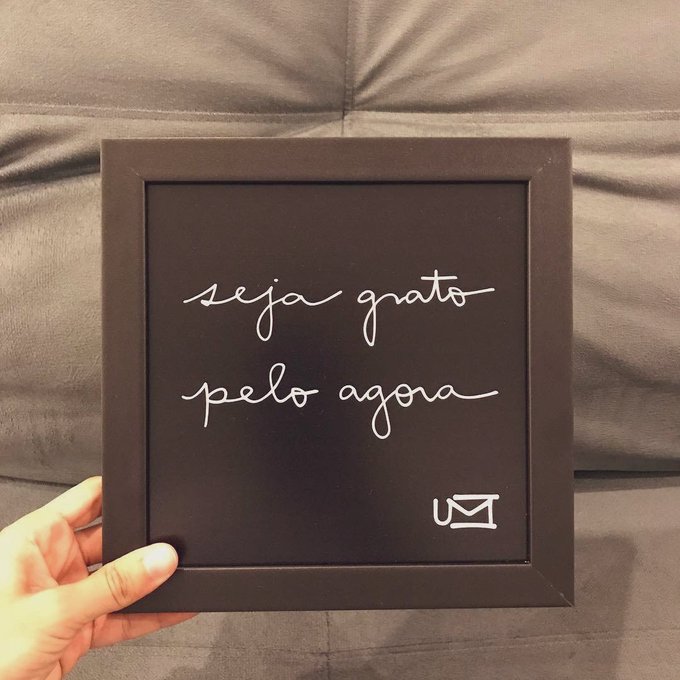 seja grato
pelo agora
UM